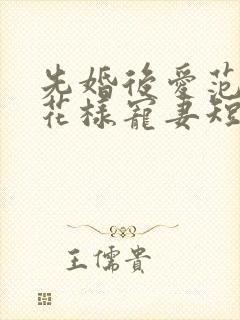 先婚後愛范
花樣寵妻短
王儒貴